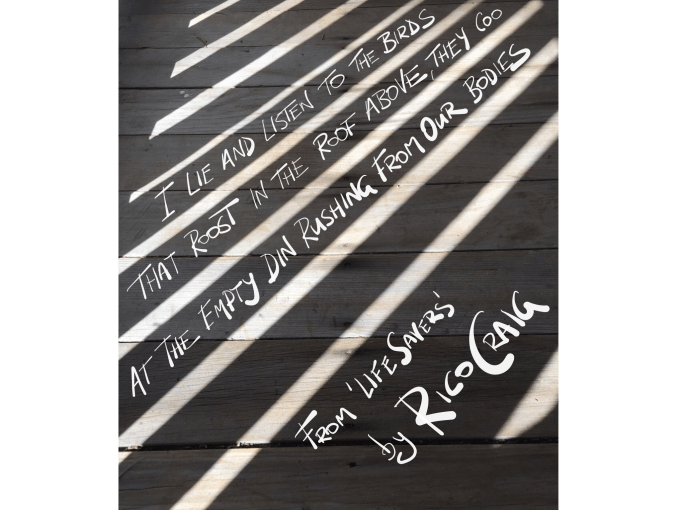 I LIE AND LISTEN TO THE BIRDS
THAT ROOST IN THE ROOF ABOVE, THEY COO
AT THE EMPTY DIN RUSHING FROM OUR BODIES
FROM 'LIFE SAVERS'
by RICO CRAIG